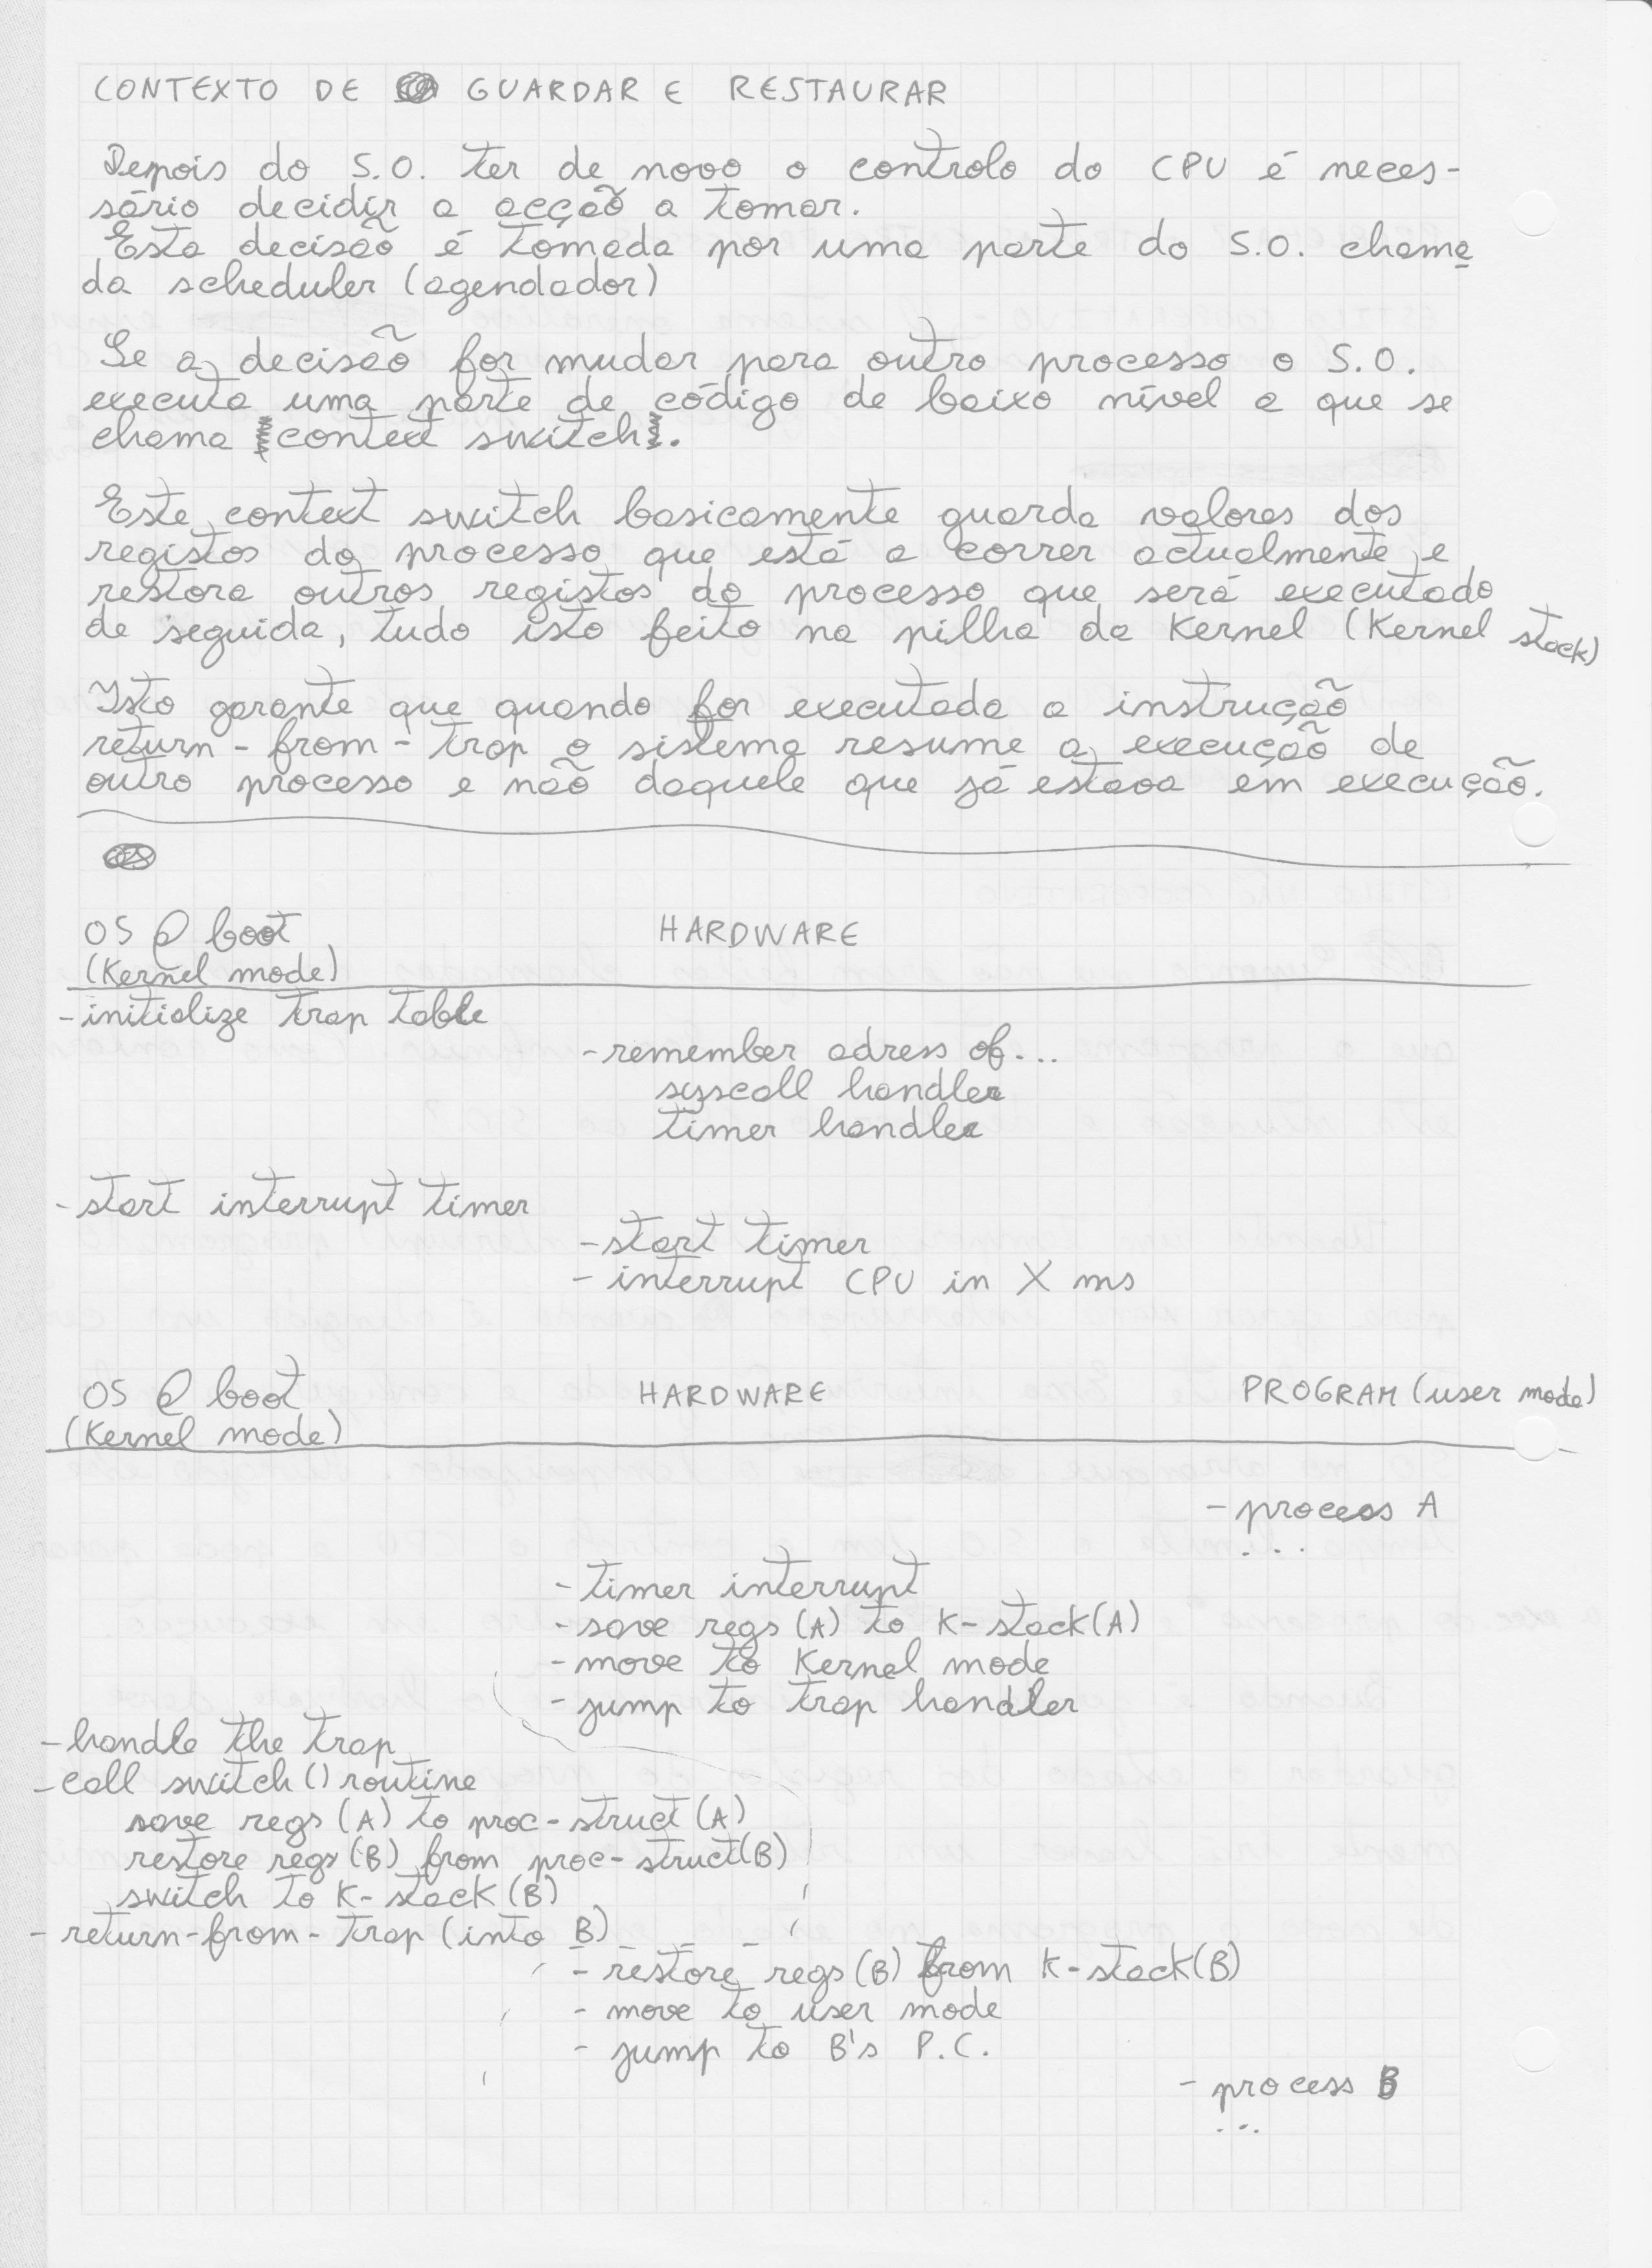 CONTEXTO DE GUARDAR E RESTAURAR
Depois do S.O. ter de novo o controlo do CPU é neces-
sário decidir a acção a tomar.
Esta decisão é tomada por uma parte do S.O. chama
da scheduler (agendador)
Se a decisão for mudar para outro processo o S.O.
executa uma parte de código de baixo nível a que se
chama context switch.
Este context switch basicamente guarda valores dos
registos do processo que está a correr actualmente e
restora outros registos do processo que será executado
de seguida, tudo isto feito na pilha da Kernel (Kernel stack)
Isto garante que quando for executada a instrução
return-from-trap o sistema resume a execução de
outro processo e não daquele que já estava em execução.
OS @ boot HARDWARE
(Kernel mode)
- initialize trap table
- remember adress of...
syscall handler
timer handler
- start interrupt timer
- start timer
- interrupt CPU in X ms
OS @ boot HARDWARE PROGRAM (user mode)
(Kernel mode)
- process A
...
- timer interrupt
- save regs (A) to K-stack(A)
- move to Kernel mode
- jump to trap handler
- handle the trap
- call switch() routine
save regs (A) to proc-struct (A)
restore regs (B) from proc-struct(B)
switch to K-stack (B)
- return-from-trap (into B)
- restore regs (B) from K-stack(B)
- move to user mode
- jump to B's P.C.
- process B
...